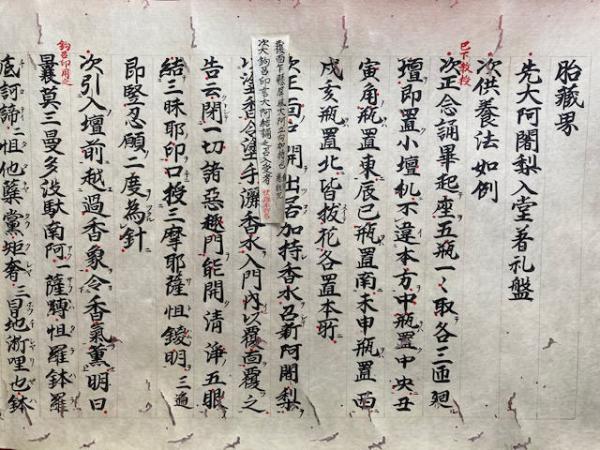 胎藏界
先大阿闍梨入堂着礼盤
次供養法 如例
巳下教授
次正念誦畢起座五瓶一〻取各三匝廻
壇即置小壇机不違本方中瓶置中央丑
寅角瓶置東辰巳瓶置南未申瓶置西
戌亥瓶置北皆拔花各置本所
加持香水召新阿闍梨
塗香令塗手灑香水入門内以覆面覆之
告云閉一切諸惡趣門能開清淨五眼
結三昧耶印口授三摩耶薩怛鑁明 三遍
即竪忍願二度為針
次引入壇前越過香象令香氣薰明曰
鉤召印用之
曩莫三曼多没馱南阿一薩轉怛羅鉢羅
底訶諦二怛他蘖黨矩奢三冐地浙哩也鉢